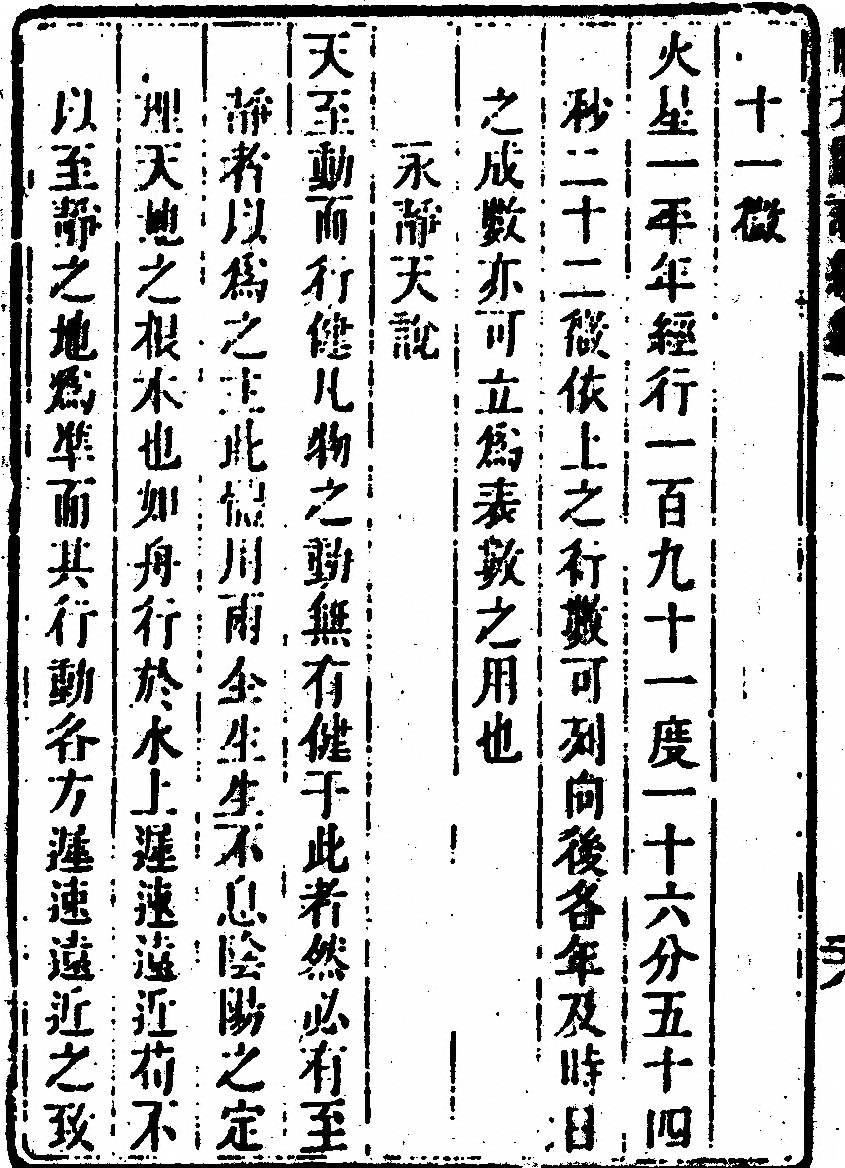 十一微
火星一平年經行一百九十一度一十六分五十四
秒二十二微依上之行數可列向後各年及時日
之成數亦可立爲表數之用也
永靜天說
天至動而行健凡物之動無有健于此者然必有至
靜者以爲之主此川雨生生不息陰陽之定
理天地之根本也如舟行於水上遲速遠近苟不
以至靜之地爲準而其行動各方遲速遠近之致